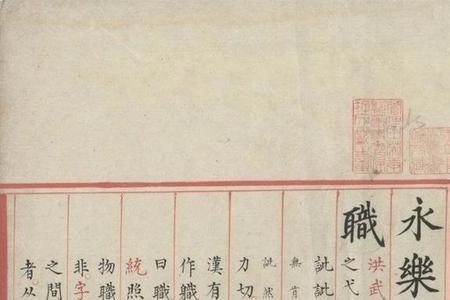 永樂
職
洪武
之弋
訿訿
無肯
訿然
力切
漢有
作職
曰職
統照
物職
非字
之間
者从